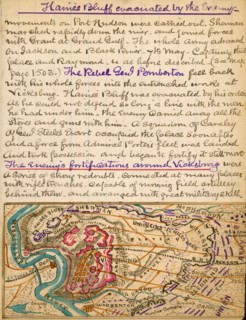 Haines Bluff evacuated by the Enemy
movements on Port Hudson were carried out. Sherman
marched rapidly down the river, and joined forces
with Grant at Grand Gulf. The whole Army advanced
on Jackson and Black River, 7th May. Capturing that
place and Raymond, as before described (See Map
page 1503). The Rebel Genl Pemberton fell back
with his whole forces into the entrenched works at
Vicksburg. Haines Bluff was evacuated by his order
as he could not defend so long a line with the men
he had under him. The Enemy carried away all the
Stores and guns with him. A Squadron of Cavalry
of Genl Steele's Escort occupied the place soon after
and a force from Admiral Porter's fleet was landed
and took possession, and began to fortify it still more
The Enemy's fortifications around Vicksburg was
a series of strong redoubts, connected at many places
with rifle trenches, capable of moving field artillery
behind them, and arranged with great military skill.
VICKSBURG
UNION